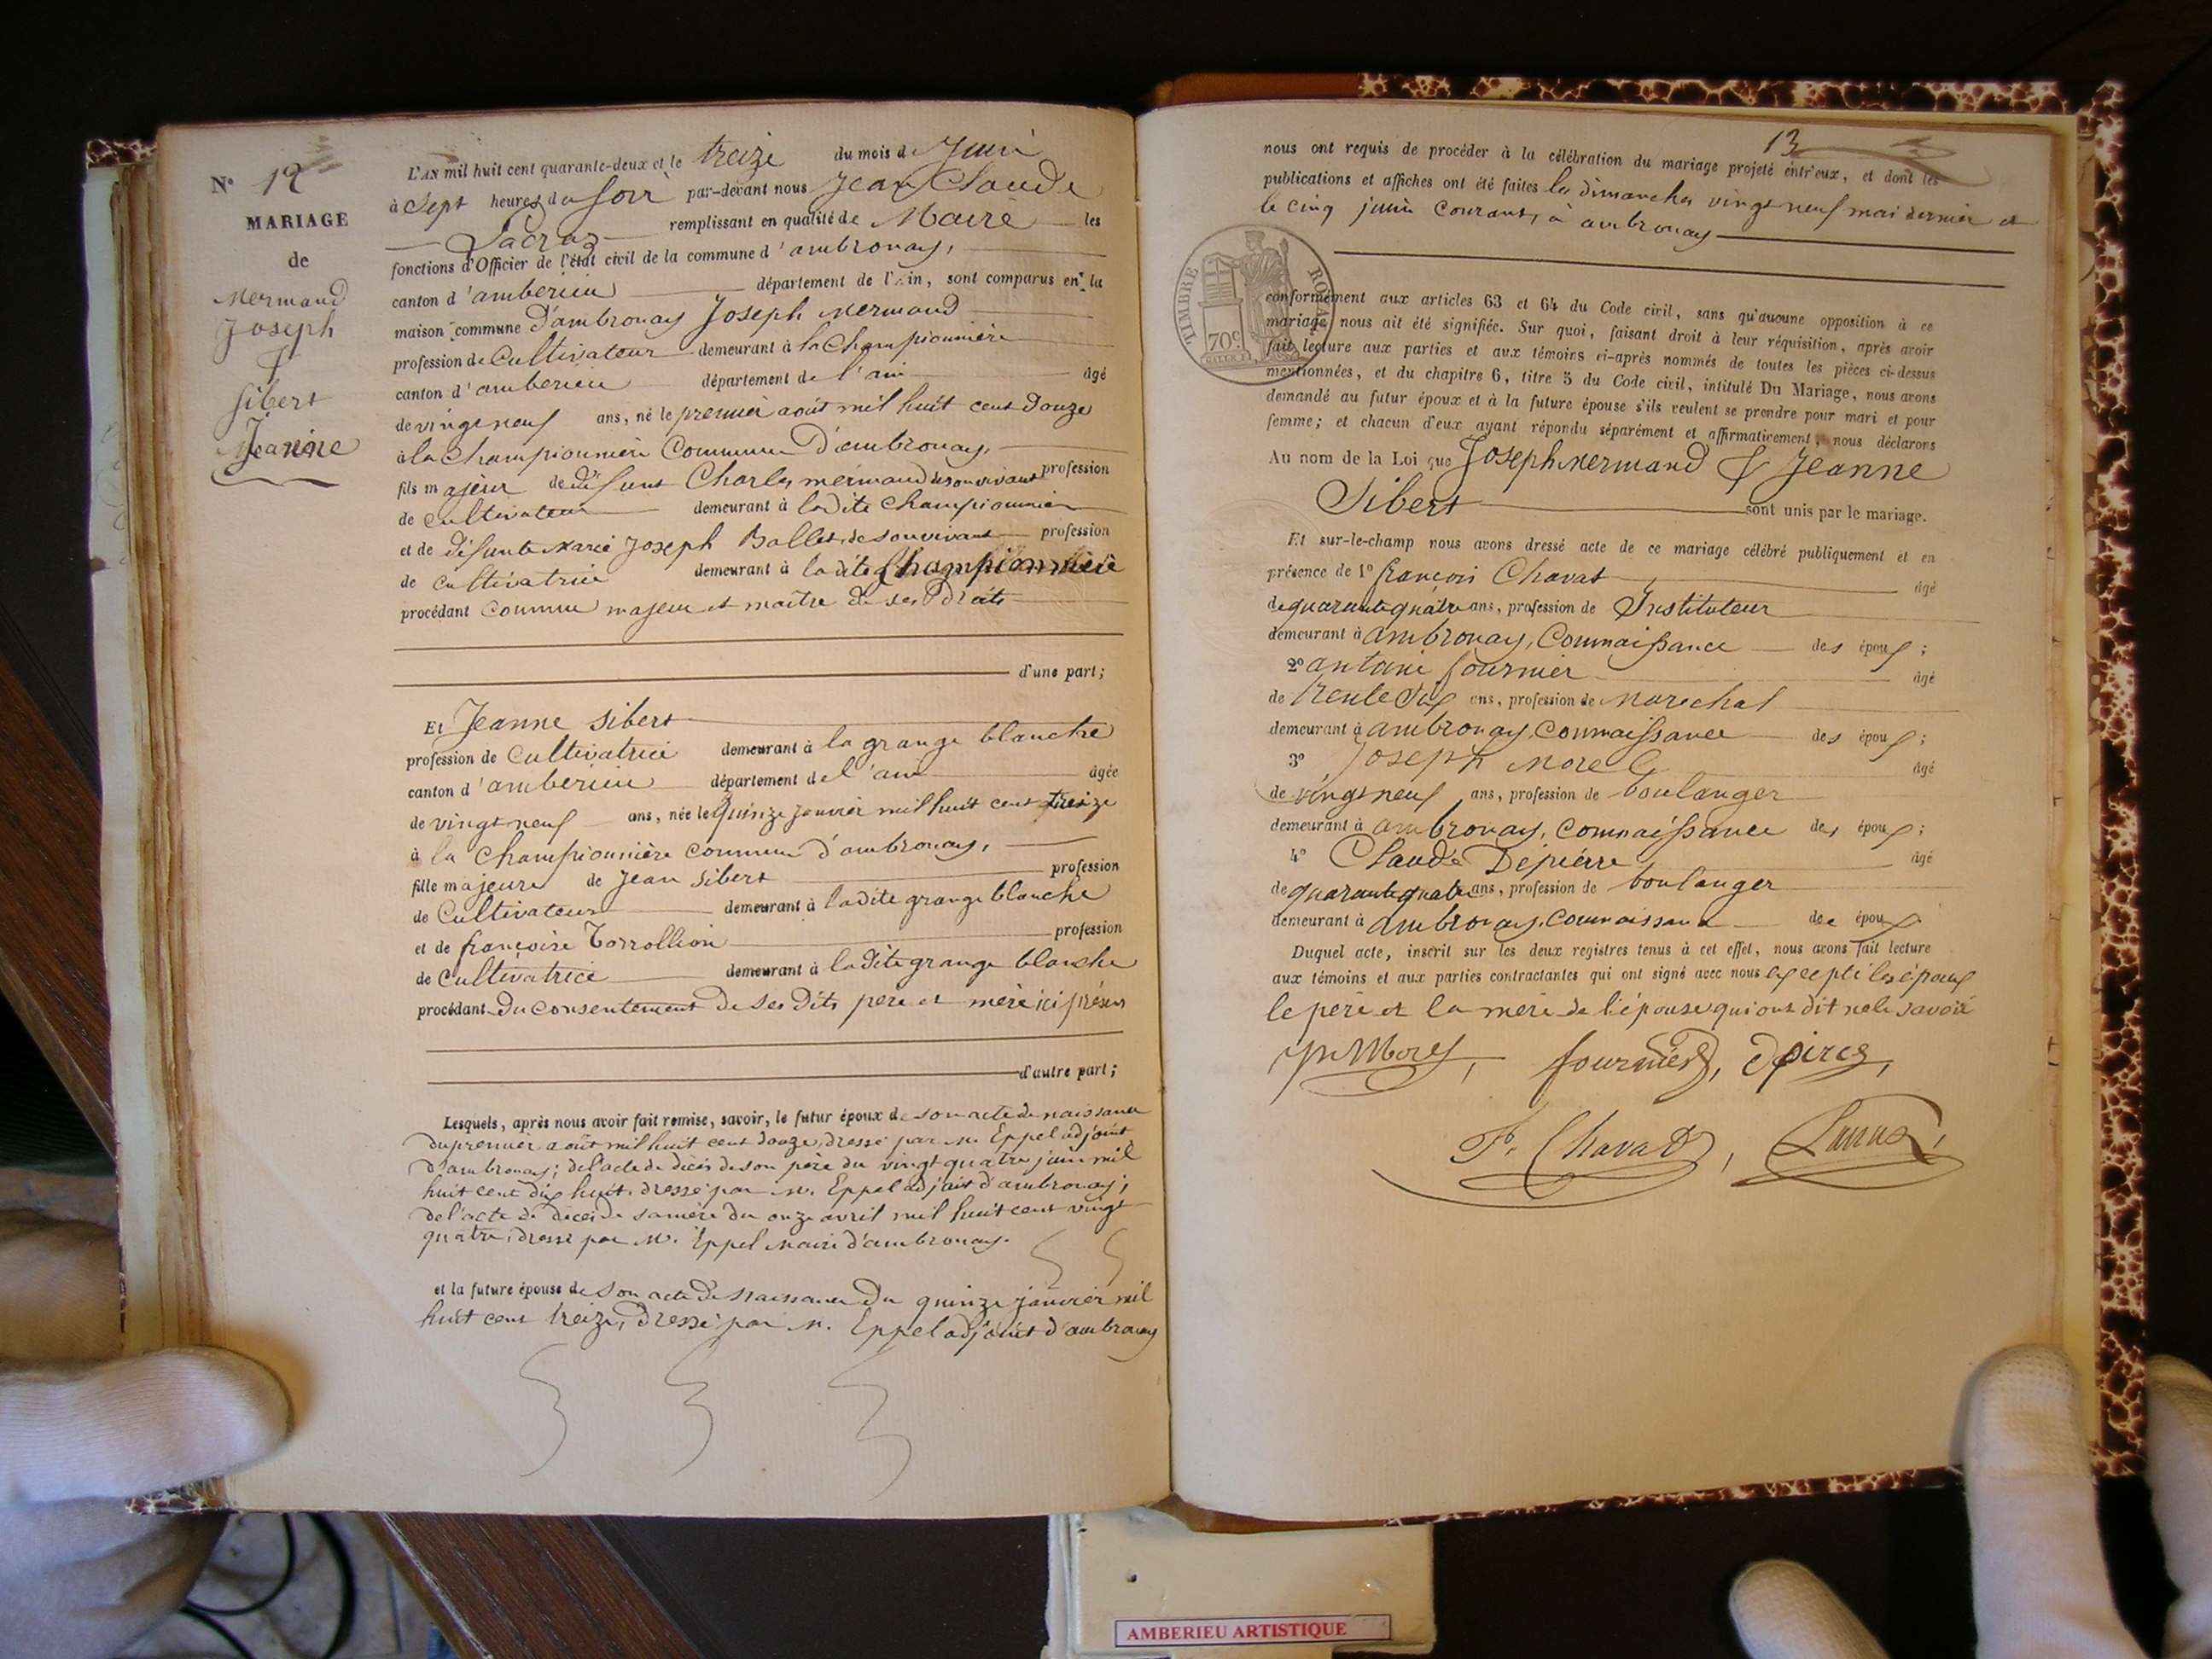 N° 12
MARIAGE
de
Mermand
Joseph
&
Sibert
Jeanne
L'AN mil huit cent quarante-deux et le treize du mois de Juin
à Sept heures du Soir par-devant nous Jean Claude
remplissant en qualité de Maire les
fonctions d'Officier de l'état civil de la commune d'ambronay,
canton d'amberieu département de l'Ain, sont comparus en la
maison commune d'ambronay Joseph Mermand
profession de Cultivateur demeurant à la Championnière
canton d'amberieu département de l'ain âgé
de vingt neuf ans, né le premier août mil huit cent douze
à la Championnière Commune D'ambronay,
fils majeur de défunt Charles mermand de son vivant profession
de cultivateur demeurant à ladite Championnière
et de défunte Marie Joseph Ballet de son vivant profession
de cultivatrice demeurant à ladite Championnière
procédant comme majeur et maitre de ses Droits
d'une part;
Et Jeanne Sibert
profession de Cultivatrice demeurant à la grange blanche
canton d'amberieu département de l'ain âgée
de vingt neuf ans, née le quinze janvier mil huit cent treize
à la Championnière commune d'ambronay,
fille majeure de Jean Sibert profession
de Cultivateur demeurant à ladite grange blanche
et de françoise Torrollion profession
de Cultivatrice demeurant à ladite grange blanche
procédant Du consentement de ses Dits pere et mère ici présens
d'autre part;
Lesquels, après nous avoir fait remise, savoir, le futur époux de son acte de naissance
du premier août mil huit cent douze, dressé par M. Eppel adjoint
d'ambronay; de l'acte de décès de son père du vingt quatre juin mil
huit cent dix huit, dressé par M. Eppel adjoint d'ambronay;
de l'acte de décès de sa mère du onze avril mil huit cent vingt
quatre, dressé par M. Eppel Maire d'ambronay.
et la future épouse de son acte de Naissance du quinze janvier mil
huit cent treize, dressé par M. Eppel adjoint d'ambronay
13
nous ont requis de procéder à la célébration du mariage projeté entr'eux, et dont les
publications et affiches ont été faites les dimanches vingt neuf mai dernier et
le cinq juin courant, à ambronay
TIMBRE ROYAL
70c
conformément aux articles 63 et 64 du Code civil, sans qu'aucune opposition à ce
mariage nous ait été signifiée. Sur quoi, faisant droit à leur réquisition, après avoir
fait lecture aux parties et aux témoins ci-après nommés de toutes les pièces ci-dessus
mentionnées, et du chapitre 6, titre 5 du Code civil, intitulé Du Mariage, nous avons
demandé au futur époux et à la future épouse s'ils veulent se prendre pour mari et pour
femme; et chacun d'eux ayant répondu séparément et affirmativement, nous déclarons
Au nom de la Loi que Joseph Mermand & Jeanne
Sibert sont unis par le mariage.
Et sur-le-champ nous avons dressé acte de ce mariage célébré publiquement et en
présence de 1° françois Chavat âgé
de quarante quatre ans, profession de Instituteur
demeurant à ambronay, Connaissance des époux;
2° antoine fournier âgé
de trente six ans, profession de Marechal
demeurant à ambronay, connaissance des époux;
3° Joseph Morel âgé
de vingt neuf ans, profession de boulanger
demeurant à ambronay, connaissance des époux;
4° Claude Depierre âgé
de quarante quatre ans, profession de boulanger
demeurant à ambronay, connaissance des époux.
Duquel acte, inscrit sur les deux registres tenus à cet effet, nous avons fait lecture
aux témoins et aux parties contractantes qui ont signé avec nous excepté les époux
le pere et la mère de l'épouse qui ont dit ne le savoir
fournier,
F. Chavat,
AMBERIEU ARTISTIQUE